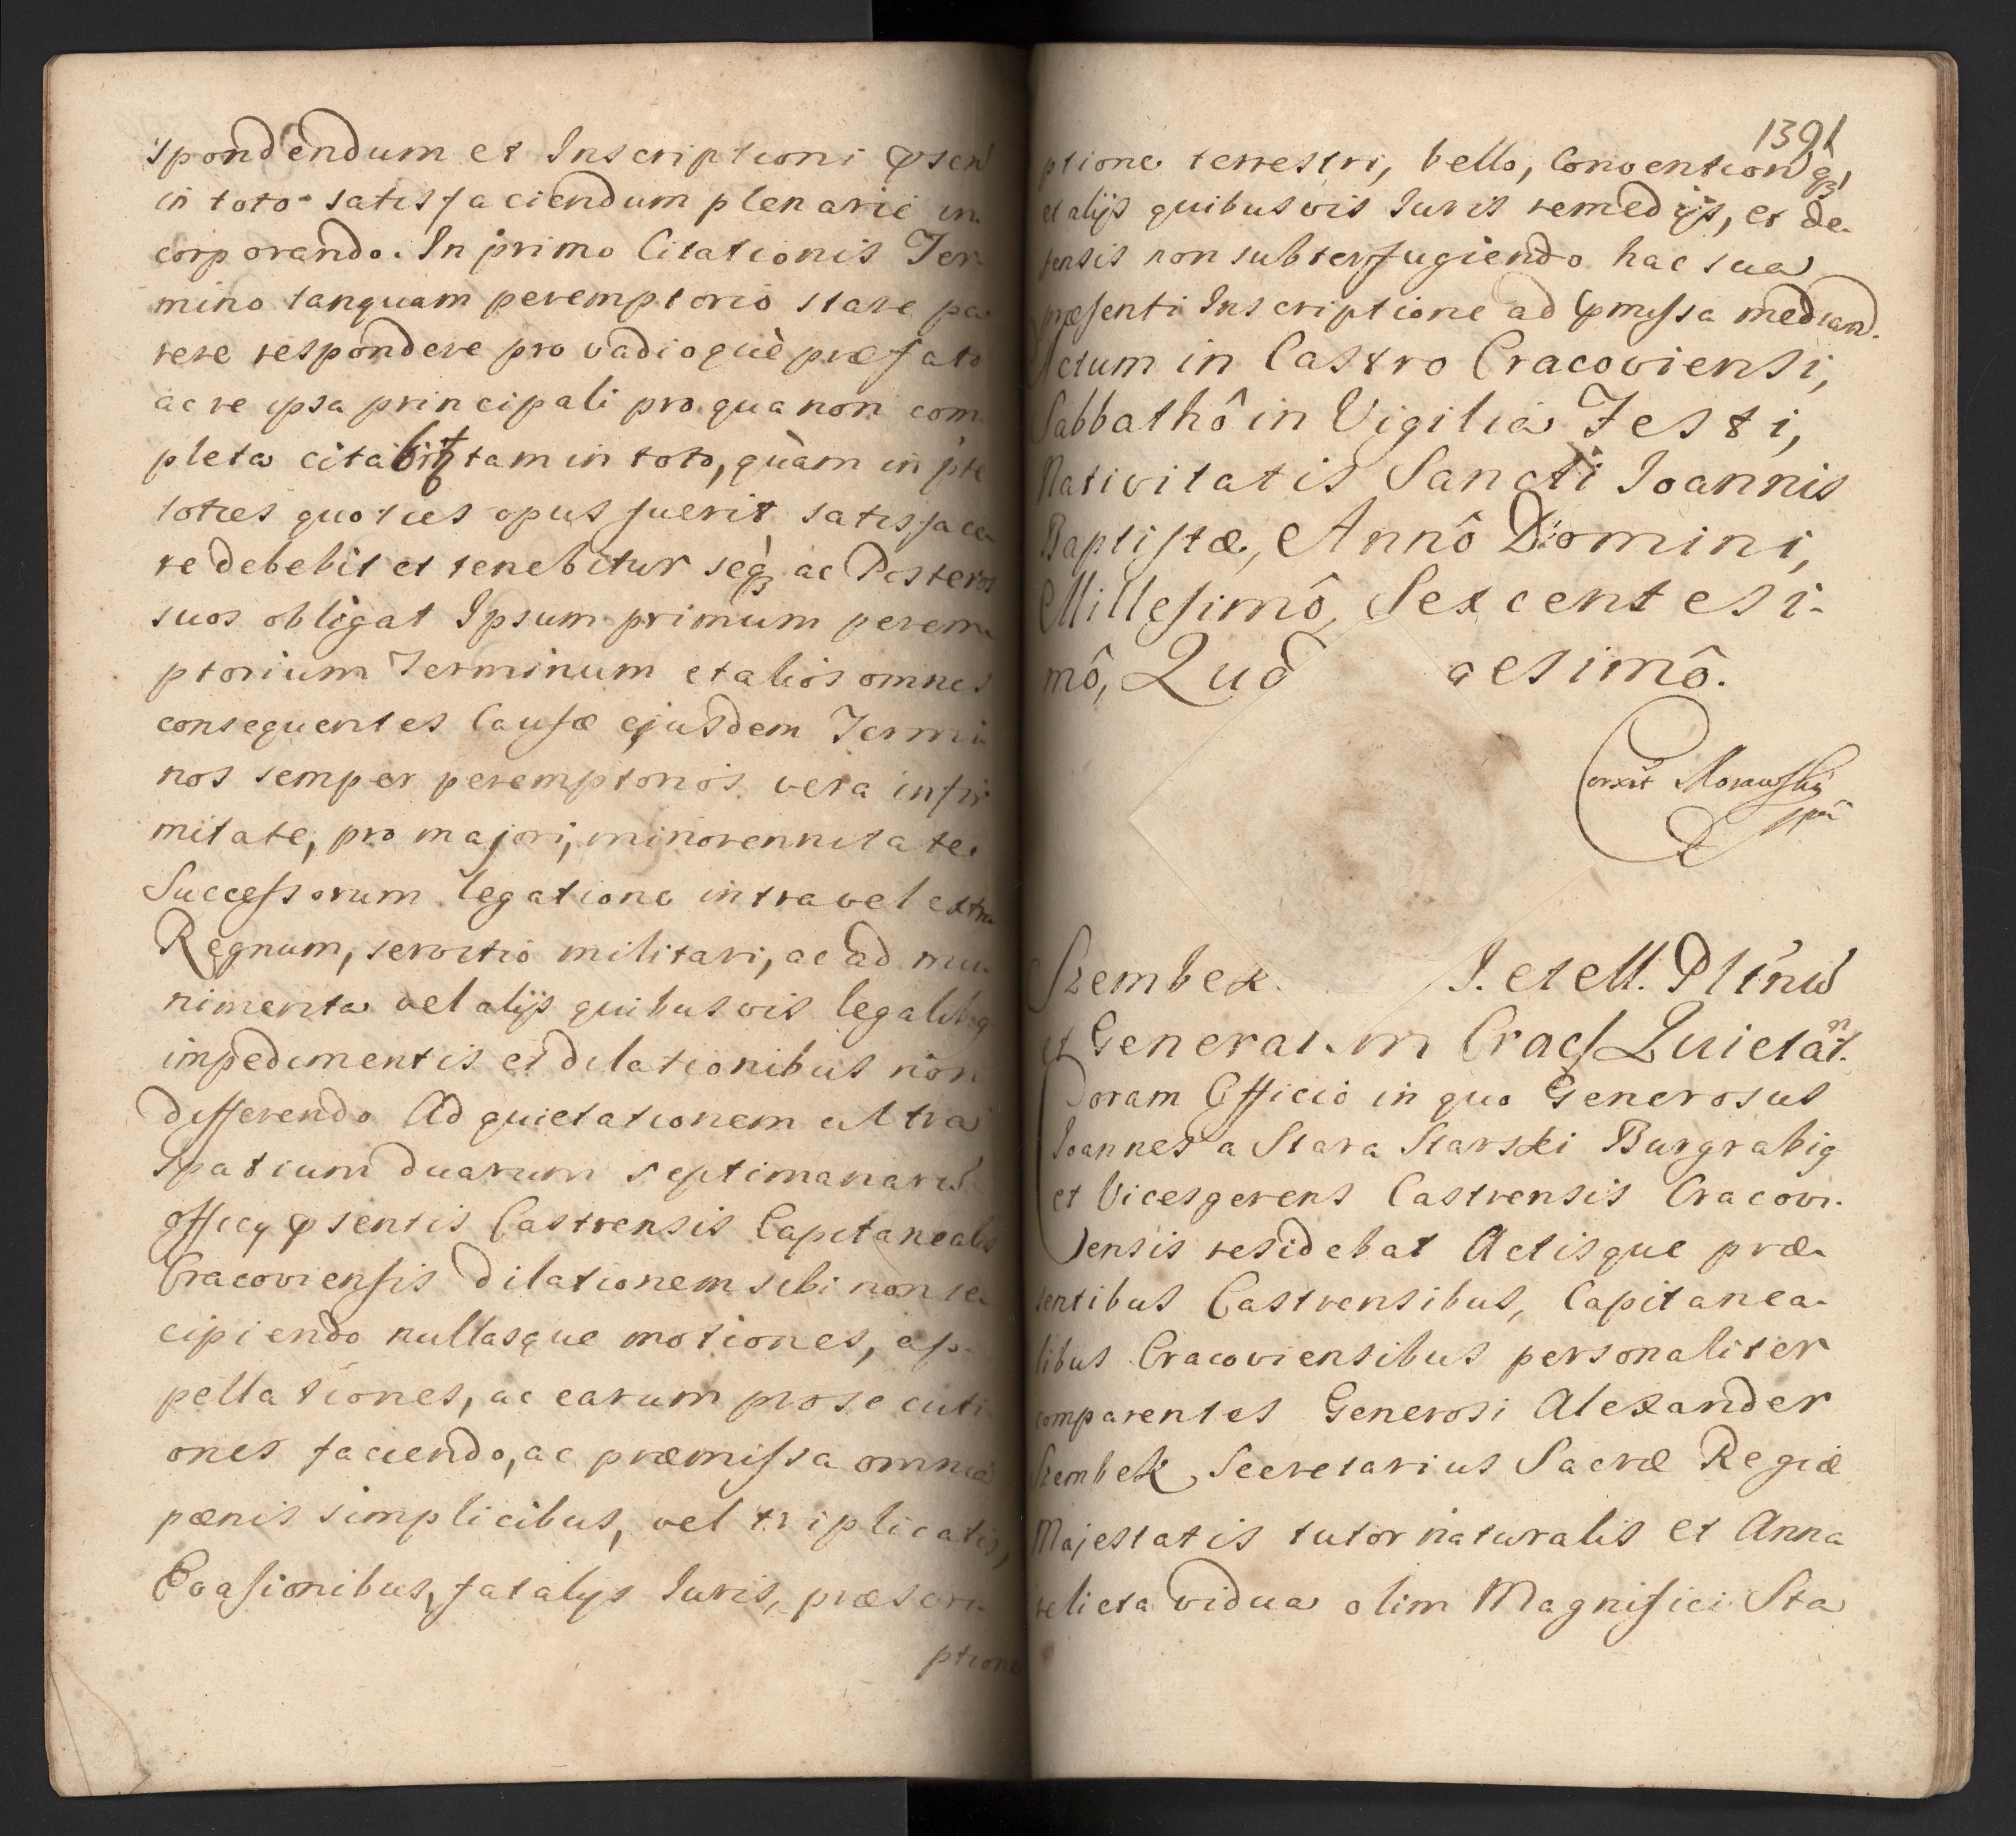 spondendum et Inscriptioni psen
in toto satisfaciendum plenarie in
corporando. In primo Citationis Ter
mino tanquam peremptorio stare pa
rere respondere pro vadioquè præfato
ac re ipsa principali pro qua non com
pleta citabitur tam in toto, quàm in pte
toties quoties opus fuerit satisface
re debebit et tenebitur seqз ac Posteros
suos obligat Ipsum primum perem
ptorium Terminum et alios omnes
consequentes Causæ ejusdem Termi
nos semper peremptorios vera infir
mitate, pro majori, minorennitate
Successorum legatione intra vel extra
Regnum, servitio militari, ac ad mu
nimenta vel alijs quibusvis legalibq
impedimentis et dilationibus non
differendo Ad quietationem ultra
spatium duarum septimanarū
officij psentis Castrensis Capitanealis
Cracoviensis dilationem sibi non re
cipiendo nullasque motiones, ap
pellationes, ac earum prosecuti
ones faciendo, ac præmissa omnia
pænis simplicibus, vel triplicatis,
Evasionibus, fatalijs Iuris, præscri
ptione
1391
ptione terrestri, bello, Conventionqз,
et alijs quibusvis Iuris remedijs, et de
fensis non subterfugiendo hac sua
præsenti Inscriptione ad pmissa median.
Actum in Castro Cracoviensi,
Sabbathô in Vigilia Festi,
Nativitatis Sancti Ioannis
Baptistæ, Annô Domini,
Millesimô, Sexcentesi-
mô, Quad gesimô.
Corxit Morawski
mpp
Szembek J. et ell. Pltnū
et General. in Cracs Quietātn.
Coram Officio in quo Generosus
Ioannes a Stara Starski Burgrabig
et Vicesgerens Castrensis Cracovi-
ensis residebat Actisque præ-
sentibus Castrensibus, Capitanea-
libus Cracoviensibus personaliter
comparentes Generosi Alexander
Szembek, Secretarius Sacræ Regiæ
Majestatis tutor naturalis et Anna
relicta vidua olim Magnifici Sta